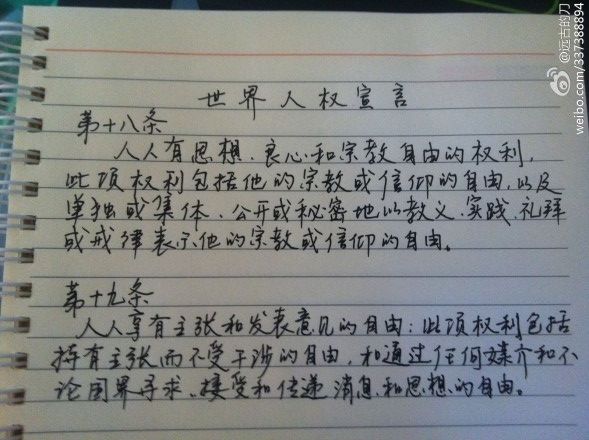 世界人权宣言
第十八条
人人有思想、良心和宗教自由的权利,
此项权利包括他的宗教或信仰的自由,以及
单独或集体、公开或秘密地以教义、实践、礼拜
或戒律表示他的宗教或信仰的自由。
第十九条
人人享有主张和发表意见的自由:此项权利包括
持有主张而不受干涉的自由,和通过任何媒介和不
论国界寻求、接受和传递消息和思想的自由。
@远古的刀
weibo.com/337388894